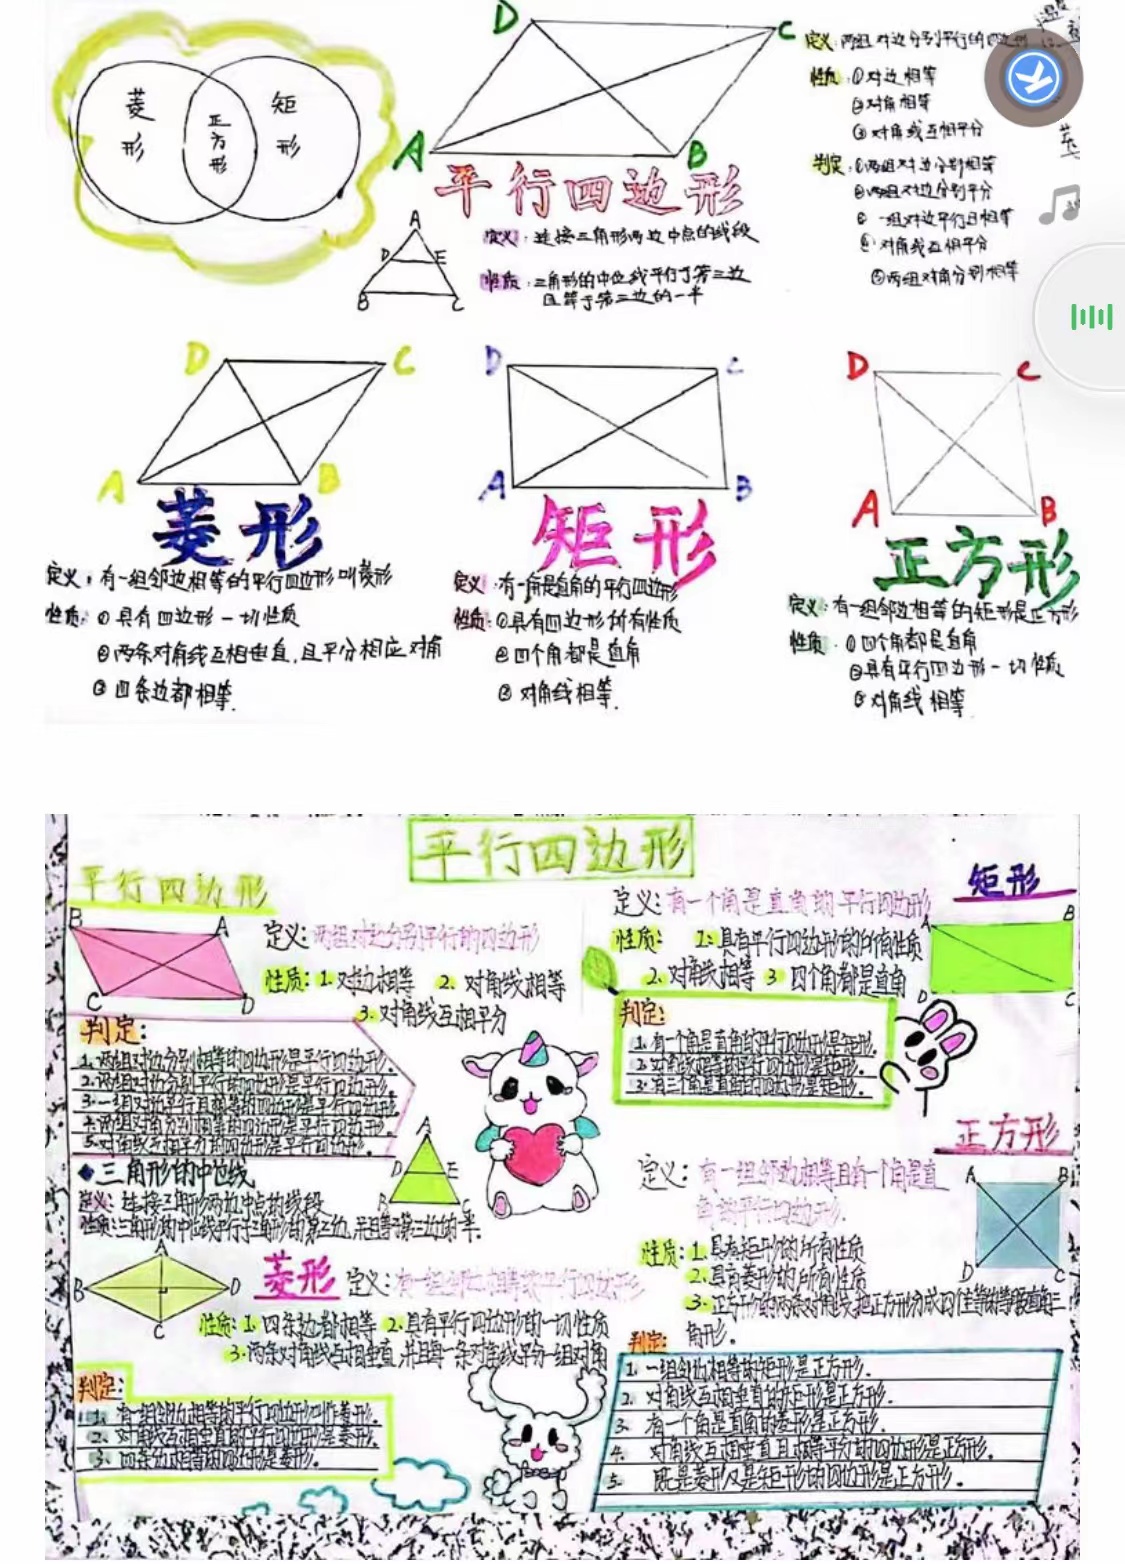 菱形
正方形
矩形
D
C
A
B
平行四边形
定义:两组对边分别平行的四边形
性质:①对边相等
②对角相等
③对角线互相平分
判定:①两组对边分别相等
②两组对边分别平分
③一组对边平行且相等
④对角线互相平分
⑤两组对角分别相等
A
D E
B C
定义:连接三角形两边中点的线段
性质:三角形的中位线平行于第三边
且等于第三边的一半
D C
A B
菱形
定义:有一组邻边相等的平行四边形叫菱形
性质:①具有四边形一切性质
②两条对角线互相垂直,且平分相应对角
③四条边都相等.
D C
A B
矩形
定义:有一角是直角的平行四边形
性质:①具有四边形所有性质
②四个角都是直角
③对角线相等.
D C
A B
正方形
定义:有一组邻边相等的矩形是正方形
性质:①四个角都是直角
②具有平行四边形一切性质
③对角线相等.
平行四边形
平行四边形
B A
C D
定义:两组对边分别平行的四边形
性质:1.对边相等 2.对角线相等
3.对角线互相平分
判定:
1.两组对边分别相等的四边形是平行四边形.
2.两组对边分别平行的四边形是平行四边形.
3.一组对边平行且相等的四边形是平行四边形.
4.两组对角分别相等的四边形是平行四边形.
5.对角线互相平分的四边形是平行四边形.
三角形的中位线
定义:连接三角形两边中点的线段
性质:三角形的中位线平行于三角形的第三边,并且等于第三边的一半.
A
D E
B C
A
B D
C
菱形
定义:有一组邻边相等的平行四边形
性质:1.四条边都相等 2.具有平行四边形的一切性质
3.两条对角线互相垂直,并且每一条对角线平分一组对角
判定:
1.有一组邻边相等的平行四边形叫作菱形.
2.对角线互相垂直的平行四边形是菱形.
3.四条边相等的四边形是菱形.
矩形
定义:有一个角是直角的平行四边形
性质: 1.具有平行四边形的所有性质
2.对角线相等 3 四个角都是直角
A B
D C
判定:
1.有一个角是直角的平行四边形是矩形.
2.对角线相等的平行四边形是矩形.
3.有三个角是直角的四边形是矩形.
正方形
定义:有一组邻边相等且有一个角是直
角的平行四边形.
A B
D C
性质:1.具有矩形的所有性质
2.具有菱形的所有性质
3.正方形的两条对角线把正方形分成四个全等的等腰直角三
角形.
判定:
1.一组邻边相等的矩形是正方形.
2.对角线互相垂直的矩形是正方形.
3.有一个角是直角的菱形是正方形.
4.对角线互相垂直且相等平分的四边形是正方形.
5.既是菱形又是矩形的四边形是正方形.